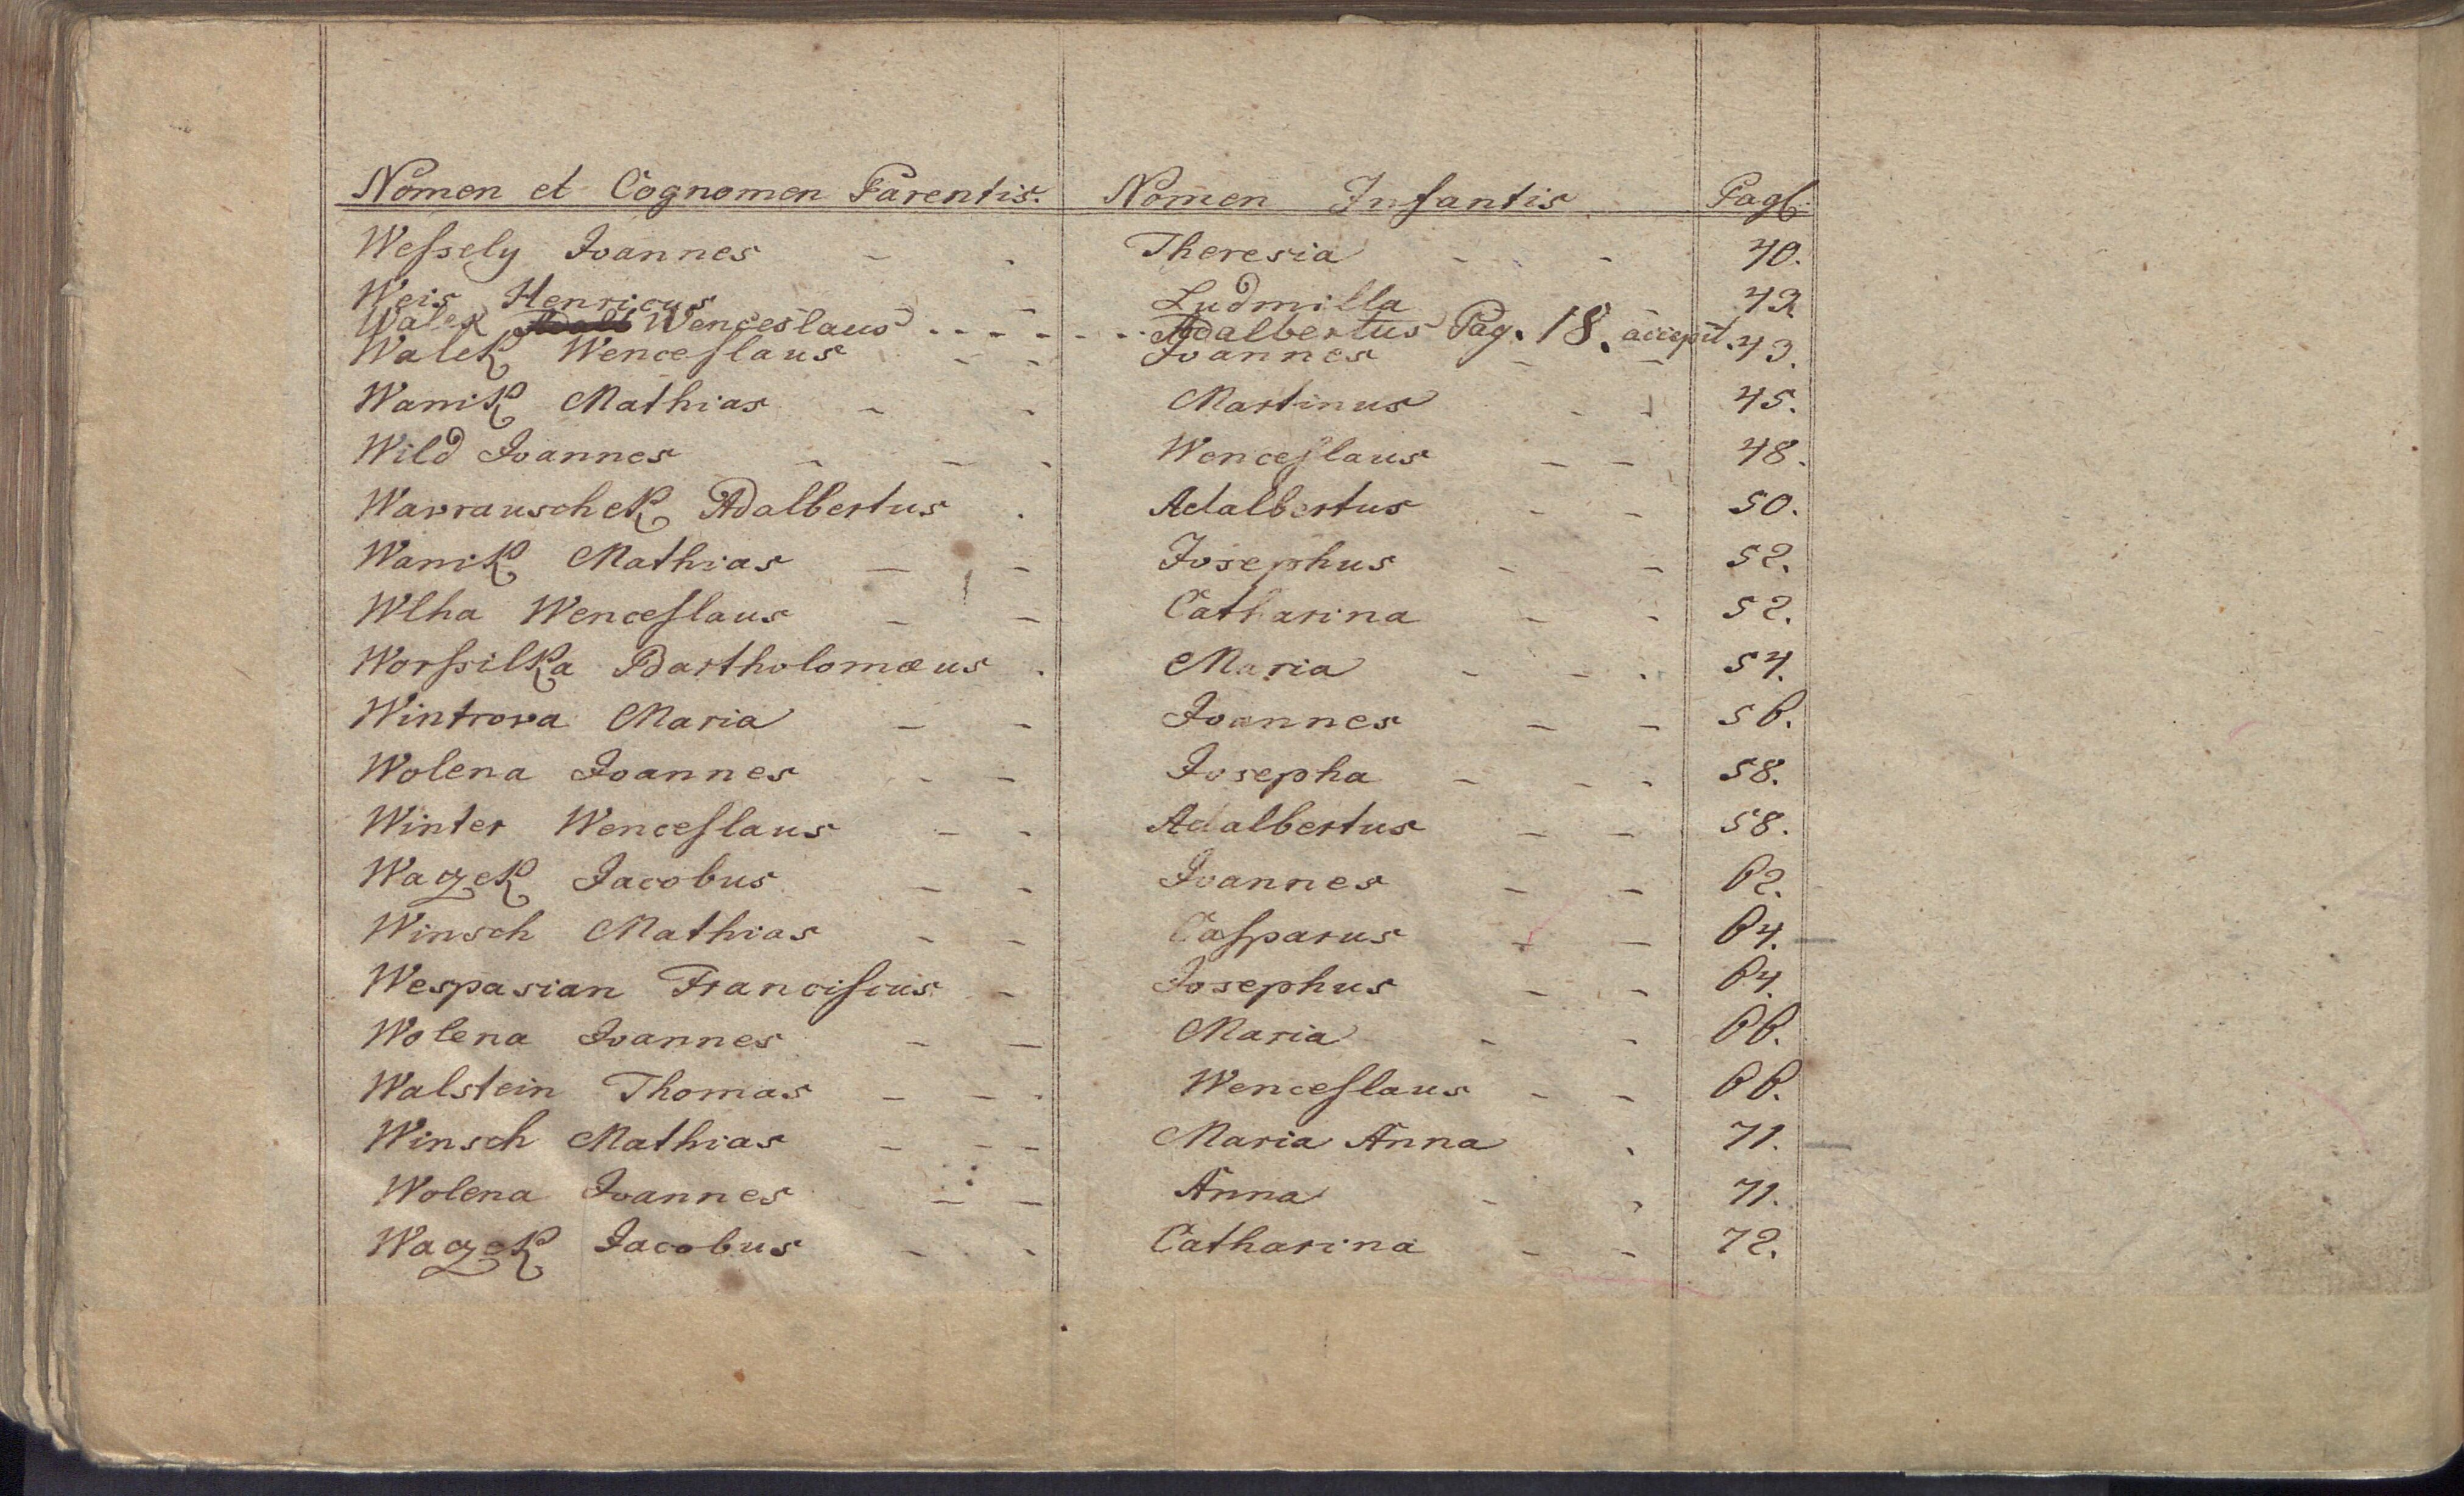 Nomen et Cognomen Parentis. Nomen Infantis Pag.
Weſsely Joannes - - Theresia - - 40.
Weis Henricus - - Ludmilla 42
Walek Wenceslaus - - - - - - - Adalbertus Pag. 18. accepit.
Walek Wenceſlaus - - Joannes - - 43.
Wanik Mathias - - Martinus - - 45.
Wild Joannes - - - Wenceſlaus - - 48.
Wavrauschek Adalbertus . Adalbertus - - 50.
Wanik Mathias - - Josephus - - 52.
Wlha Wenceſlaus - - Catharina - - 52.
Worſsilka Bartholomæus . Maria - - - 54.
Wintrova Maria - - Joannes - - 56.
Wolena Joannes - - Josepha - - - 58.
Winter Wenceſlaus - - Adalbertus - - 58.
Waczek Jacobus - - Joannes - - 62.
Winsch Mathias - - Caſparus - - 64.
Wespasian Franciſcus - Josephus - - 64.
Wolena Joannes - - Maria - - 66.
Walstein Thomas - - - Wenceſlaus - - 66.
Winsch Mathias - - - Maria Anna . 71.
Wolena Joannes - - Anna - - 71.
Waczek Jacobus - - Catharina - - 72.